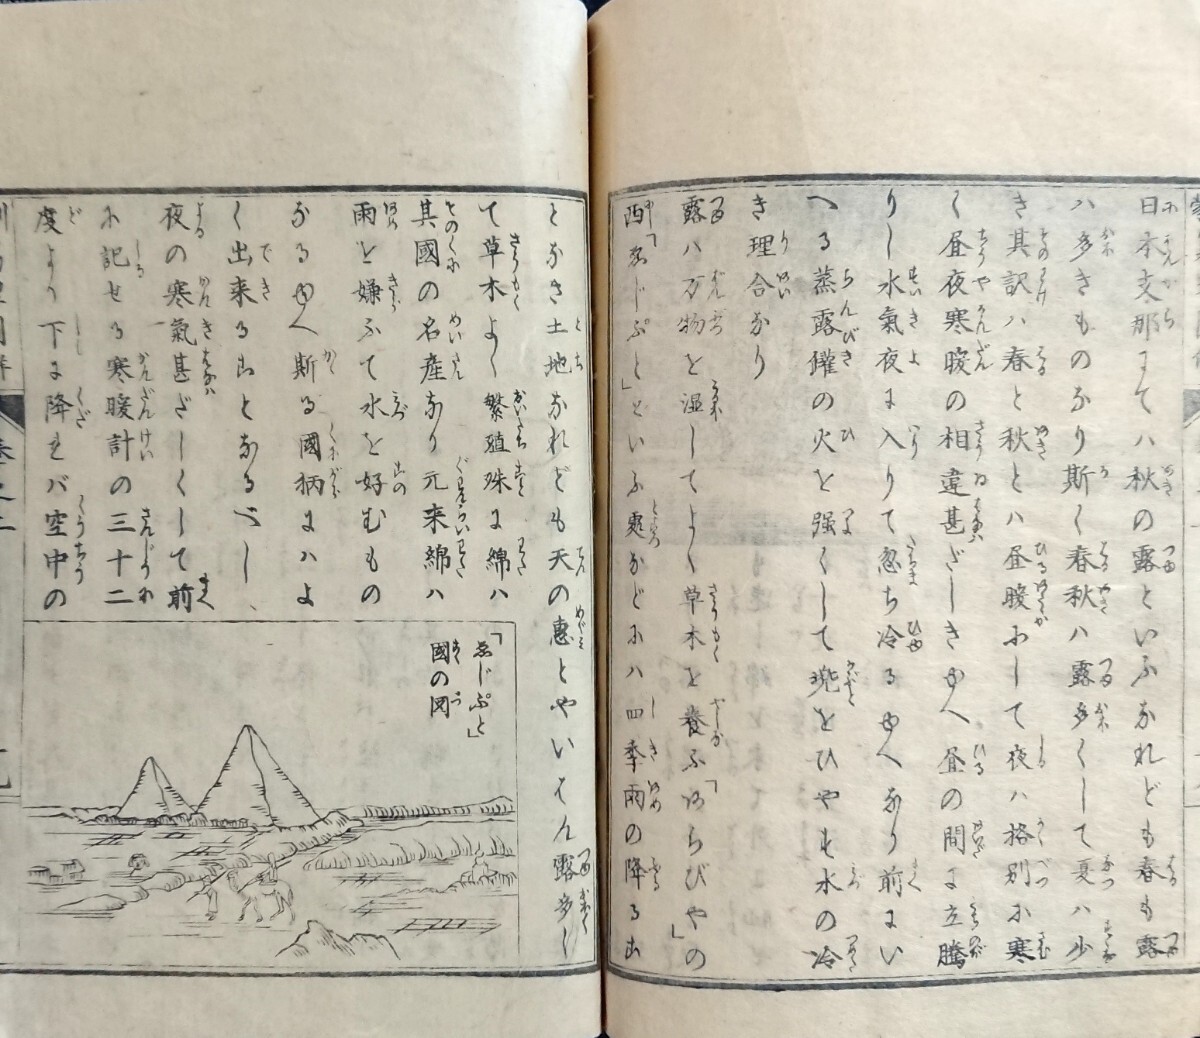 日本支那にてハ秋の露といふなれども春も露
ハ多きものなり斯く春秋ハ露多くして夏ハ少
き其訳ハ春と秋とハ昼暖かにして夜ハ格別に寒
く昼夜寒暖の相違甚ざしきゆへ昼の間に立騰
りし水氣夜に入りて忽ち冷るゆへなり前にい
へる蒸露罐の火を強くして兜をひやす水の冷
き理合なり
露ハ万物を湿してよく草木を養ふ「あらびや」の
西「ゑじぷと」といふ處などにハ四季雨の降るこ
となき土地なれども天の惠とやいはん露多く
て草木よく繁殖殊に綿ハ
其國の名産なり元来綿ハ
雨を嫌ふて水を好むもの
なるゆへ斯る國柄にハよ
く出来ることなるべし
夜の寒氣甚ざしくして前
に記せる寒暖計の三十二
度より下に降れバ空中の
「ゑじぷと」
國の図